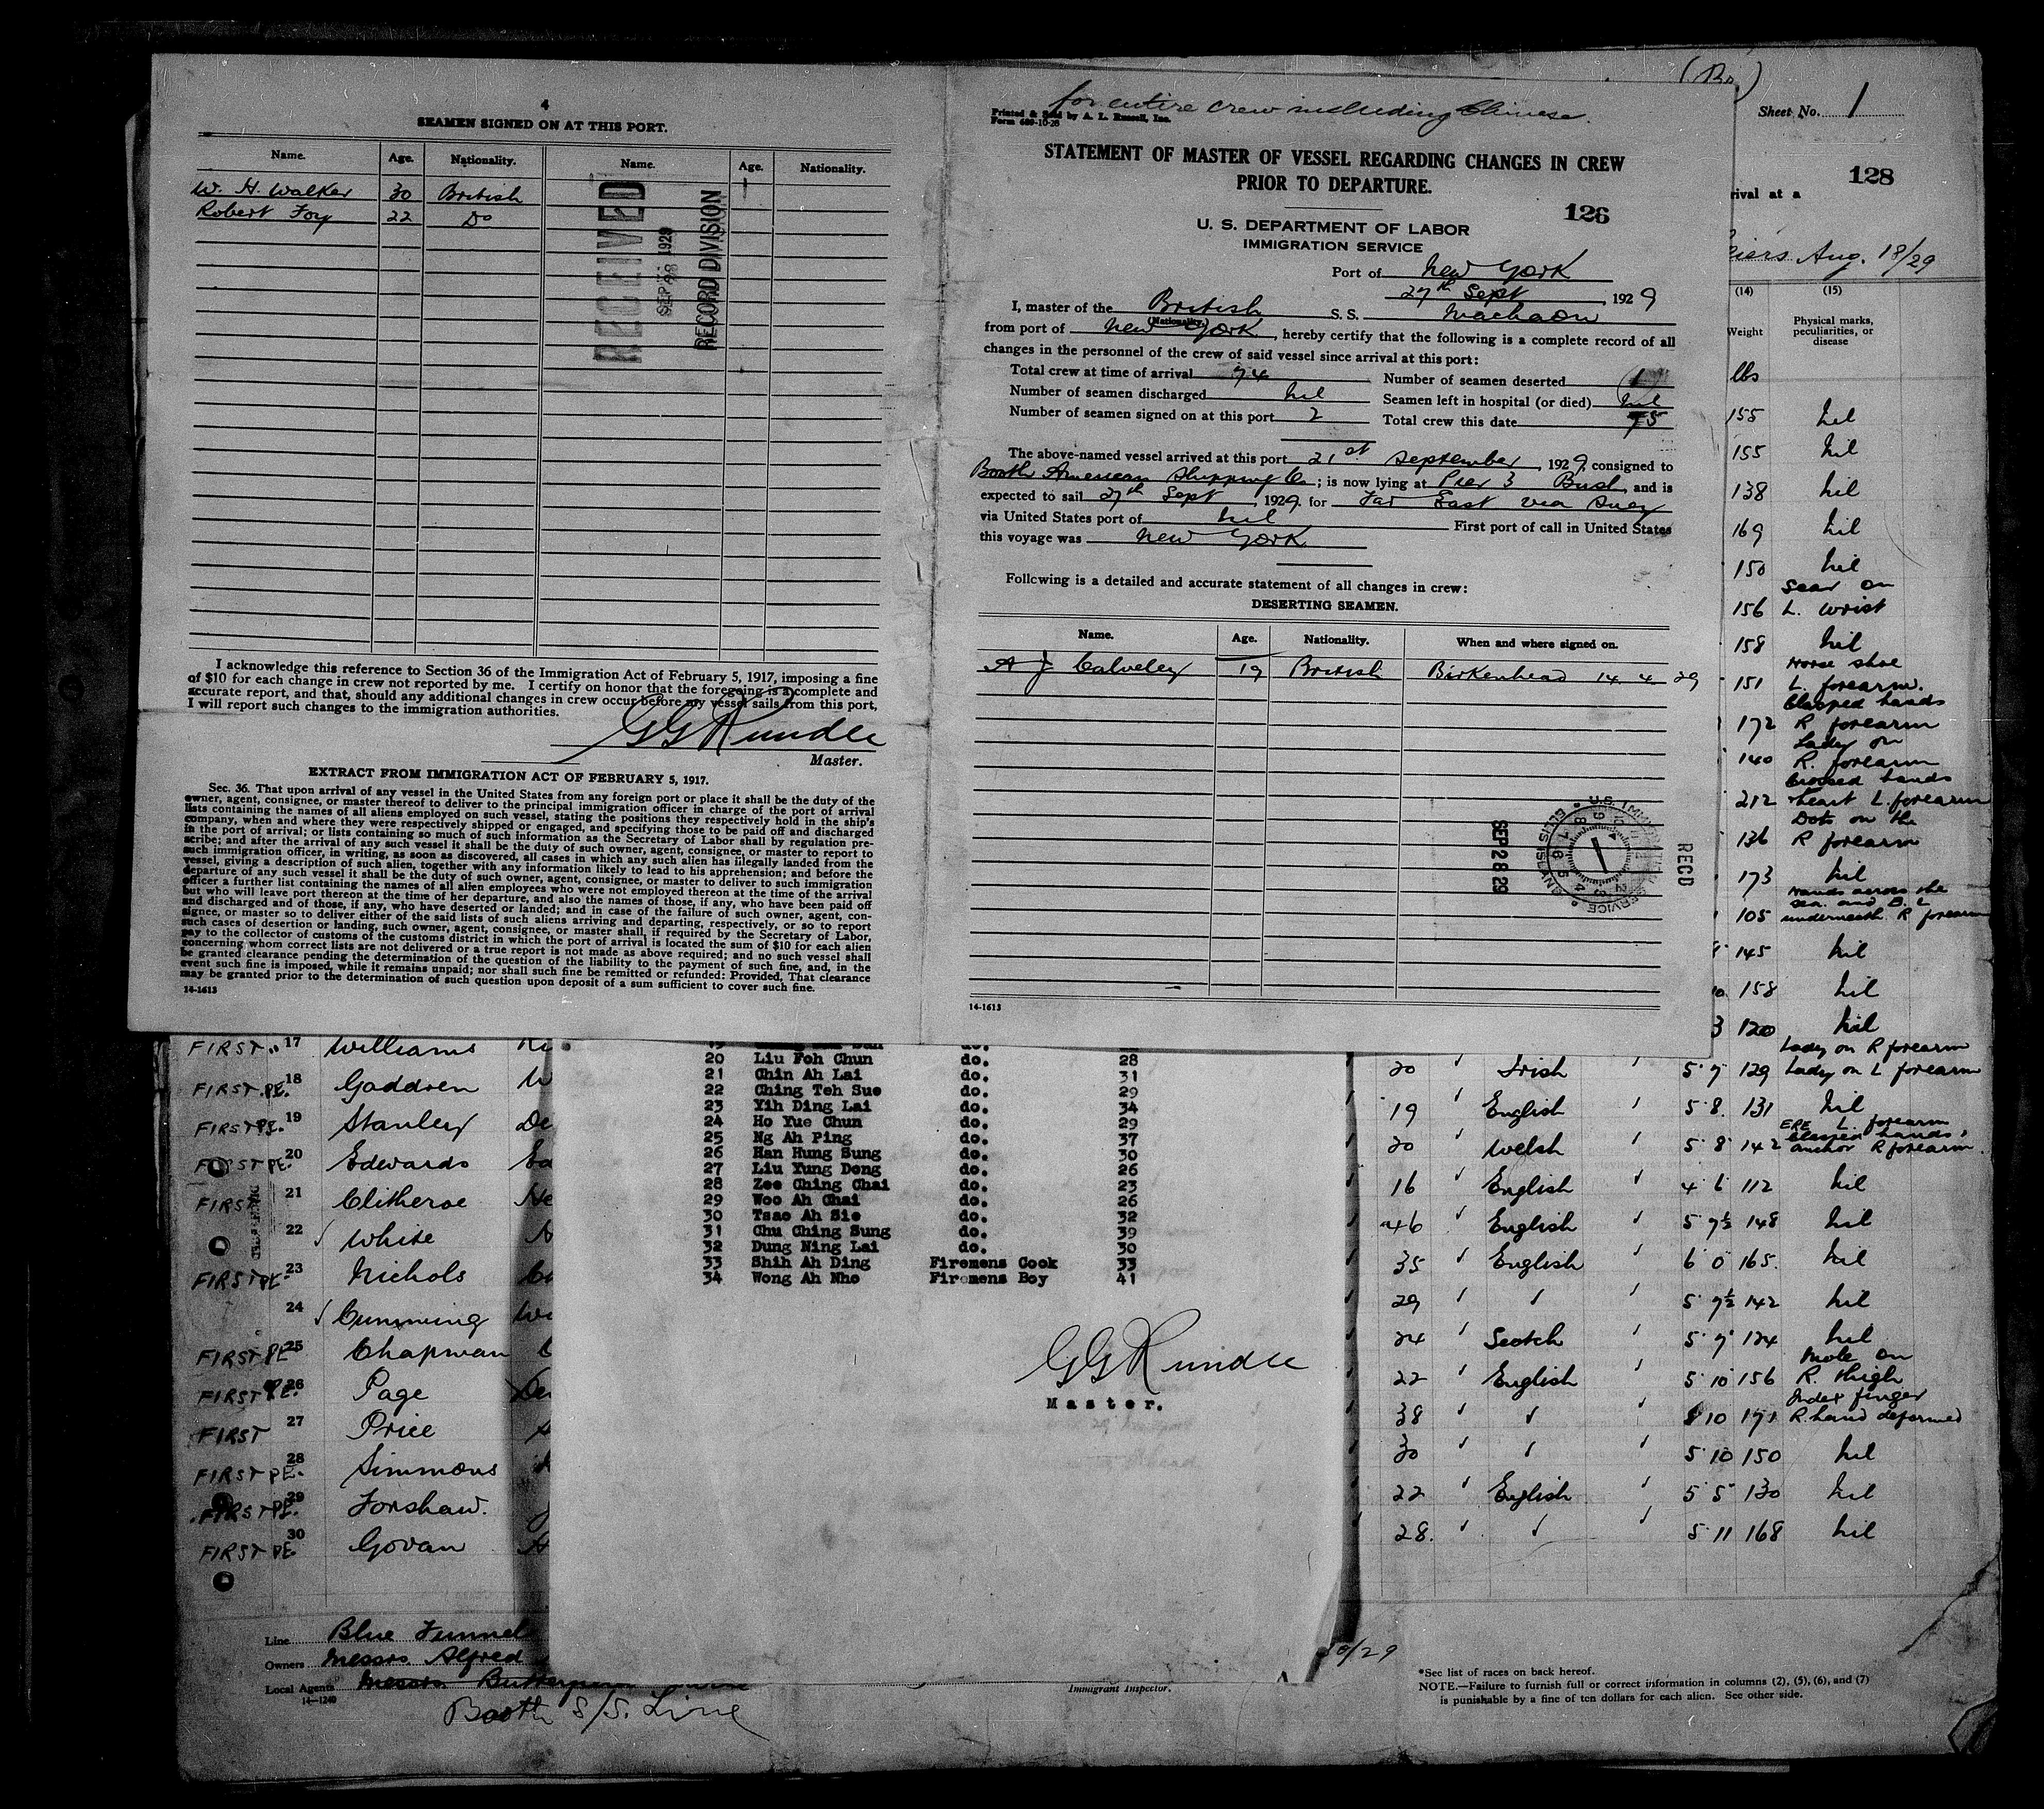 4
SEAMEN SIGNED ON AT THIS PORT.
Name. Age. Nationality. Name. Age. Nationality.
W. H. Walker 30 British
Robert Foy 22 Do
RECEIVED
SEPT 28 1929
RECORD DIVISION
I acknowledge this reference to Section 36 of the Immigration Act of February 5, 1917, imposing a fine
of $10 for each change in crew not reported by me. I certify on honor that the foregoing is a complete and
accurate report, and that, should any additional changes in crew occur before my vessel sails from this port,
I will report such changes to the immigration authorities.
GG Rundle
Master.
EXTRACT FROM IMMIGRATION ACT OF FEBRUARY 5, 1917.
Sec. 36. That upon arrival of any vessel in the United States from any foreign port or place it shall be the duty of the
owner, agent, consignee, or master thereof to deliver to the principal immigration officer in charge of the port of arrival
lists containing the names of all aliens employed on such vessel, stating the positions they respectively hold in the ship's
company, when and where they were respectively shipped or engaged, and specifying those to be paid off and discharged
in the port of arrival; or lists containing so much of such information as the Secretary of Labor shall by regulation pre-
scribe; and after the arrival of any such vessel it shall be the duty of such owner, agent, consignee, or master to report to
such immigration officer, in writing, as soon as discovered, all cases in which any such alien has illegally landed from the
vessel, giving a description of such alien, together with any information likely to lead to his apprehension; and before the
departure of any such vessel it shall be the duty of such owner, agent, consignee, or master to deliver to such immigration
officer a further list containing the names of all alien employees who were not employed thereon at the time of the arrival
but who will leave port thereon at the time of her departure, and also the names of those, if any, who have been paid off
and discharged and of those, if any, who have deserted or landed; and in case of the failure of such owner, agent, con-
signee, or master so to deliver either of the said lists of such aliens arriving and departing, respectively, or so to report
such cases of desertion or landing, such owner, agent, consignee, or master shall, if required by the Secretary of Labor,
pay to the collector of customs of the customs district in which the port of arrival is located the sum of $10 for each alien
concerning whom correct lists are not delivered or a true report is not made as above required; and no such vessel shall
be granted clearance pending the determination of the question of the liability to the payment of such fine, and, in the
event such fine is imposed, while it remains unpaid; nor shall such fine be remitted or refunded: Provided, That clearance
may be granted prior to the determination of such question upon deposit of a sum sufficient to cover such fine.
14-1613
for entire crew including Chinese.
Printed & Sold by A. L. Russell, Inc.
Form 689-10-28
STATEMENT OF MASTER OF VESSEL REGARDING CHANGES IN CREW
PRIOR TO DEPARTURE.
126
U. S. DEPARTMENT OF LABOR
IMMIGRATION SERVICE
Port of New York
27th Sept, 1929
I, master of the British S. S. Machaon
(Nationality)
from port of New York, hereby certify that the following is a complete record of all
changes in the personnel of the crew of said vessel since arrival at this port:
Total crew at time of arrival 74 Number of seamen deserted 1
Number of seamen discharged nil Seamen left in hospital (or died) nil
Number of seamen signed on at this port 2 Total crew this date 75
The above-named vessel arrived at this port 21st September, 1929, consigned to
Booth American Shipping Co; is now lying at Pier 3 Bush, and is
expected to sail 27th Sept 1929. for Far East via Suez
via United States port of nil First port of call in United States
this voyage was New York
Following is a detailed and accurate statement of all changes in crew:
DESERTING SEAMEN.
Name. Age. Nationality. When and where signed on.
A J Calveley 19 British Birkenhead 14. 4. 29
SEP 28 29
U.S. IMMIGRATION SERVICE
ELLIS ISLAND
RECD
14-1613
(Br)
Sheet No. 1
128
rival at a
Aug. 18/29
(14) (15)
Weight Physical marks,
peculiarities, or
disease
lbs
155 nil
155 nil
138 nil
169 nil
150 nil
156 Scar on
L. wrist
158 nil
151 Horse shoe
L. forearm.
172 Clasped hands
R forearm
140 Lady on
R. forearm
212 Crossed hands
heart L. forearm
136 Dots on the
R forearm
173 nil
105 Hands across the
sea. and B. L
underneath. R forearm
145 nil
158 nil
120 nil
FIRST 17 Williams
FIRST PE. 18 Gaddren
FIRST PE. 19 Stanley
FIRST PE. 20 Edwards
FIRST 21 Clitheroe
22 White
FIRST PE 23 Nichols
24 Cumming
FIRST PE 25 Chapman
FIRST PE. 26 Page
FIRST 27 Price
FIRST PE. 28 Simmons
FIRST PE. 29 Forshaw.
FIRST PE 30 Govan
20 Liu Foh Chun do. 28
21 Chin Ah Lai do. 31
22 Ching Teh Sue do. 29
23 Yih Ding Lai do. 34
24 Ho Yue Chun do. 29
25 Ng Ah Ping do. 37
26 Han Hung Sung do. 30
27 Liu Yung Dong do. 26
28 Zee Ching Chai do. 23
29 Woo Ah Chai do. 26
30 Tsao Ah Sie do. 32
31 Chu Ching Sung do. 39
32 Dung Ning Lai do. 30
33 Shih Ah Ding Firemens Cook 33
34 Wong Ah Nho Firemens Boy 41
GG Rundle
Master.
20 Irish 5 7 129 Lady on R forearm
Lady on L forearm
19 English 5 8. 131 nil
20 Welsh 5 8 142 ERE L. forearm
Clasped hands,
anchor R forearm.
16 English 4 6 112 nil
46 English 5 7½ 148 nil
35 English 6 0 165. nil
29 5 7½ 142 nil
24 Scotch 5 7 124 nil
22 English 5 10 156 Mole on
R. thigh
38 5 10 171 Index finger
R. hand deformed
30 5 10 150 nil
22 English 5 5 130 nil
28. 5 11 168 nil
Line Blue Funnel
Owners Messrs. Alfred
Local Agents Messrs.
14-1240
Booth S/S. Line
/29
Immigrant Inspector.
*See list of races on back hereof.
NOTE.—Failure to furnish full or correct information in columns (2), (5), (6), and (7)
is punishable by a fine of ten dollars for each alien. See other side.